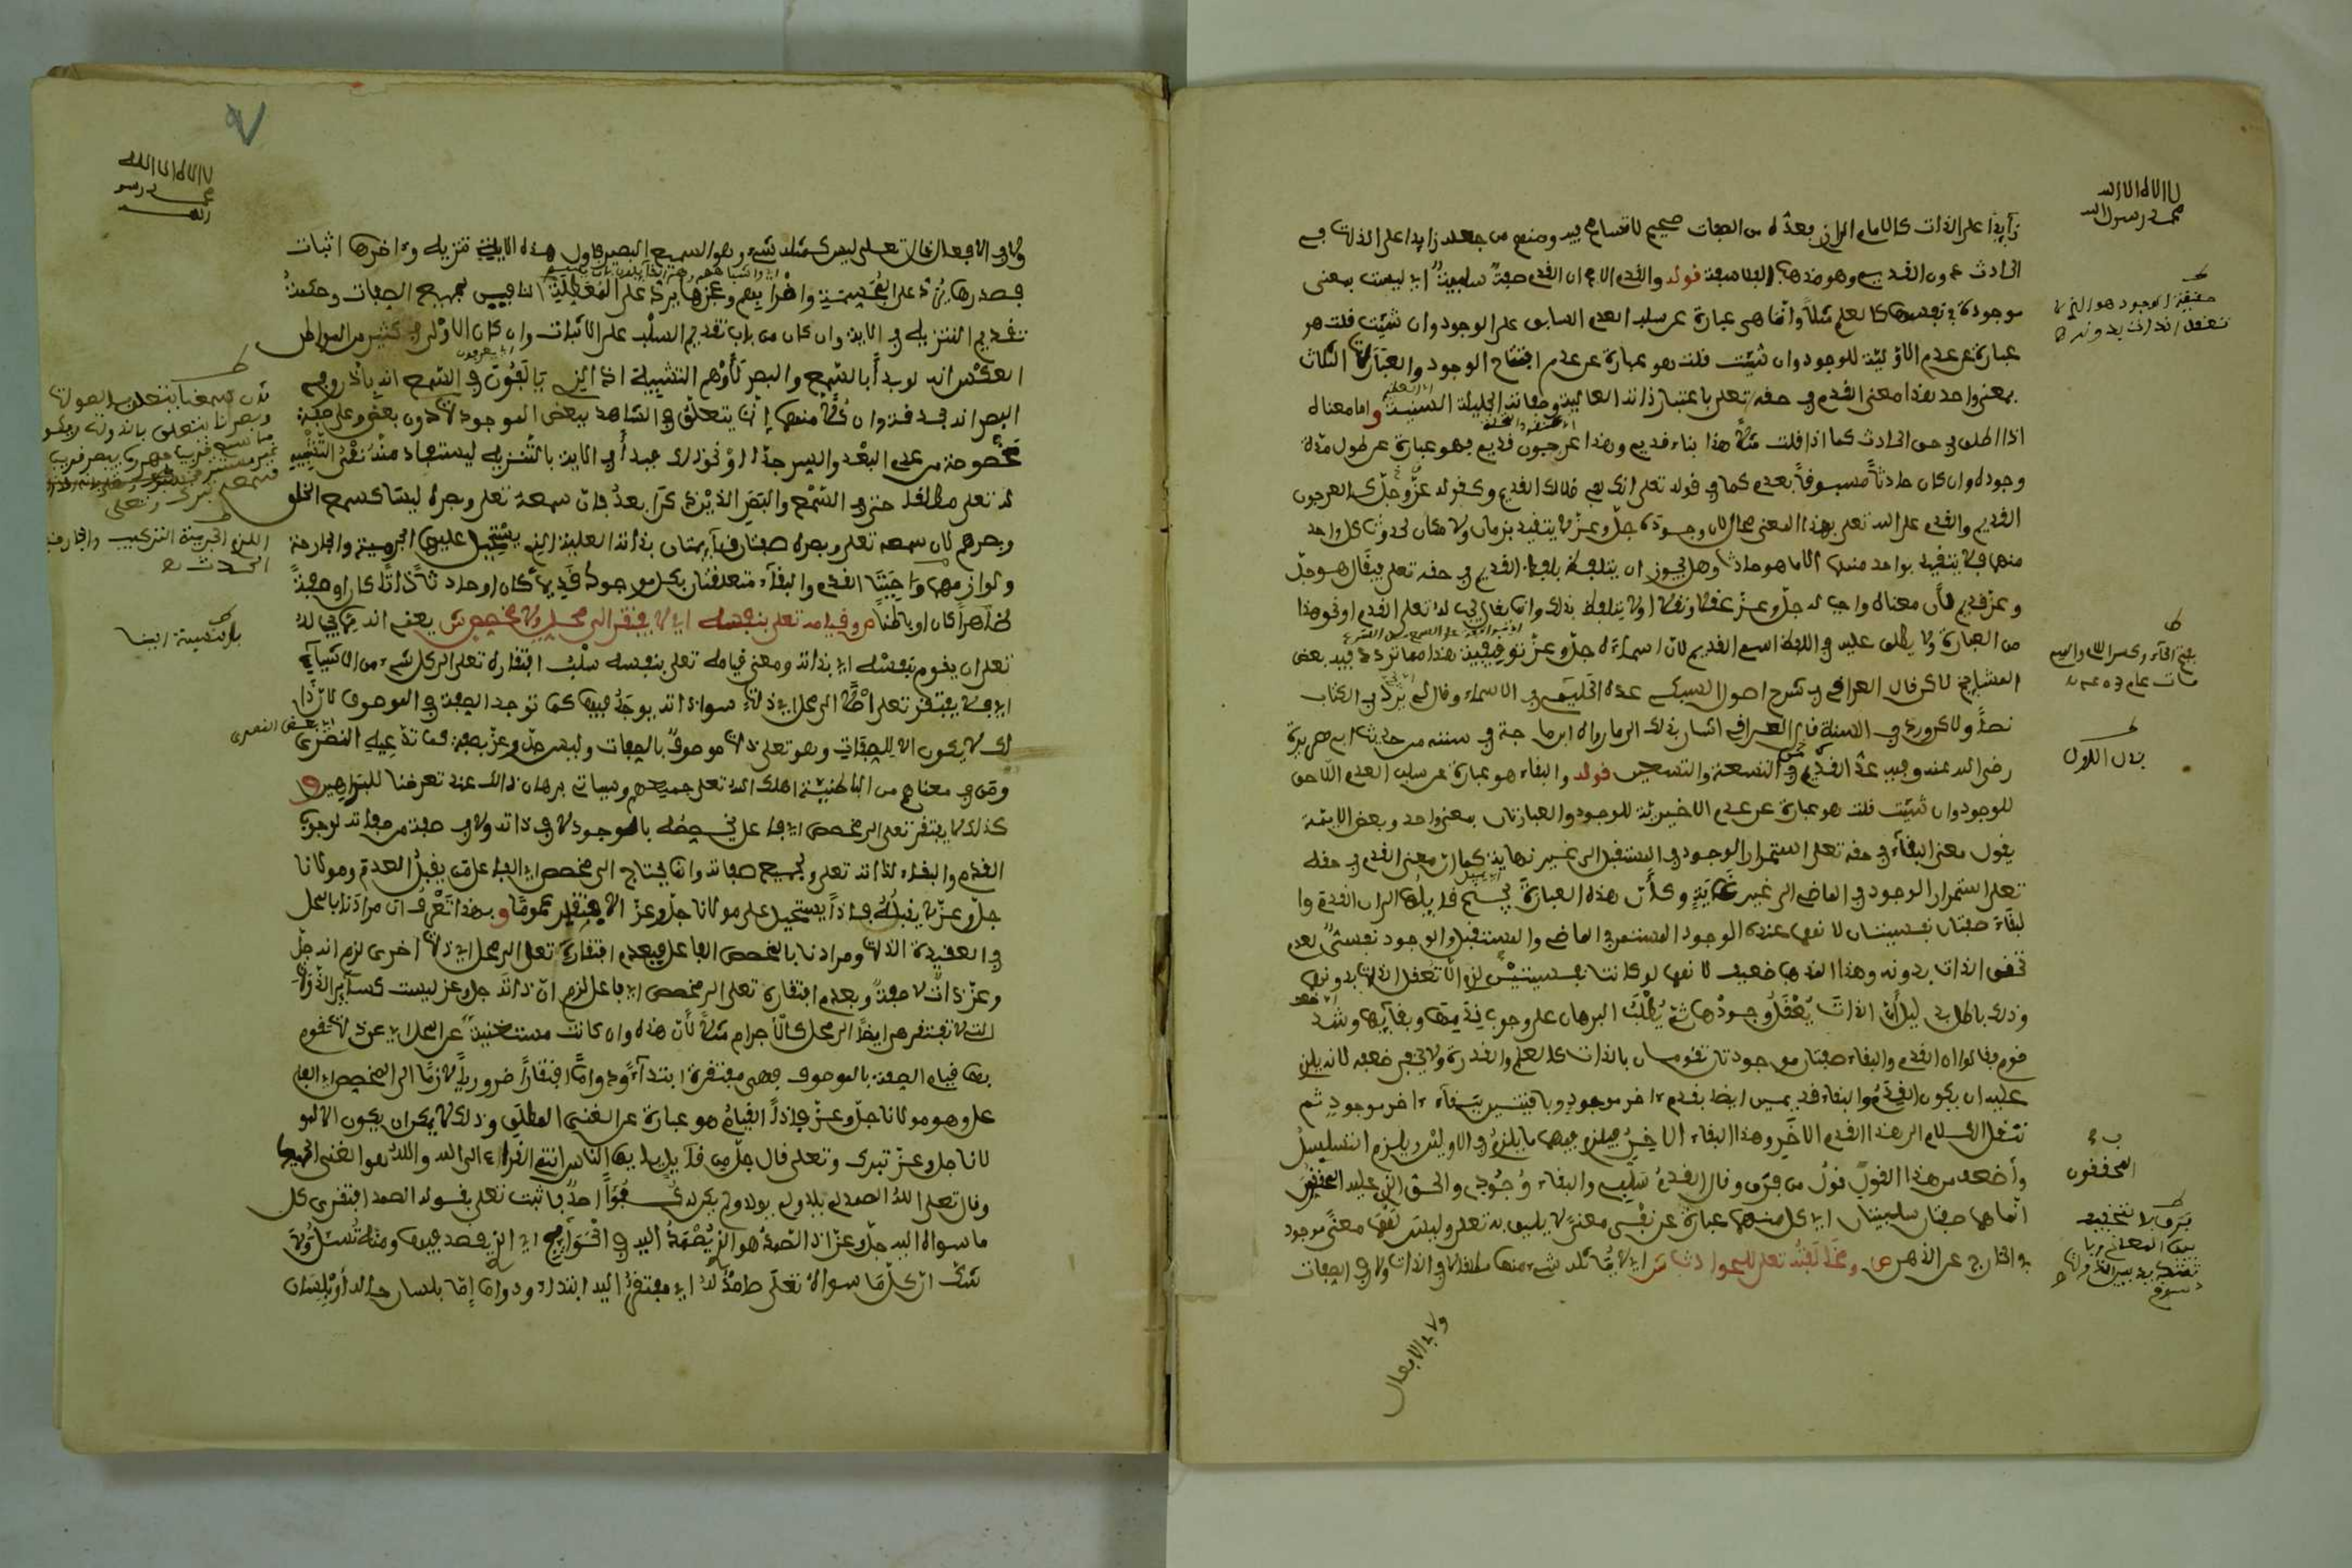 لا اله الا الله
محمد رسول الله
زايدا على الذات كالامام الرازي فعده من الصفات صحيح لا تسامح فيه ومنهم من جعله زايدا على الذات في
الحادث دون القديم وهو مذهب الفلاسفة قوله والقدم الاصح ان القدم صفة سلبية اي ليست بمعنى
موجود في نفسها كالعلم مثلا وانما هي عبارة عن سلب العدم السابق على الوجود وان شئت قلت هو
عبارة عن عدم الاولية للوجود وان شئت قلت هو عبارة عن عدم افتتاح الوجود والعبارات الثلاث
بمعنى واحد هذا معنى القدم في حقه تعلى باعتبار ذاته العالية وصفاته الجليلة السنية واما معناه
اذا اطلق في حق الحادث كما اذا قلت مثلا هذا بناء قديم وهذا عرجون قديم فهو عبارة عن طول مدة
وجوده وان كان حادثا مسبوقا بعدم كما في قوله تعلى انك لفي ضلالك القديم وكقوله عز وجل كالعرجون
القديم والقدم على الله تعلى بهذا المعنى محال لان وجوده جل وعز لا يتقيد بزمان ولا مكان لحدوث كل واحد
منهما فلا يتقيد بواحد منهما الا ما هو حادث وهل يجوز ان يتلفظ بلفظ القديم في حقه تعلى فيقال هو جل
وعز قديم لان معناه واجب له جل وعز عقلا ونقلا او لا يتلفظ بذلك وانما يقال يجب له تعلى القدم او نحو هذا
من العبارة ولا يطلق عليه في اللفظ اسم القديم لان اسماءه جل وعز توقيفية هذا مما تردد فيه بعض
المشايخ لاكن قال العراقي في شرح اصول السبكي عده الحليمي في الاسماء وقال لم يرد في الكتاب
نصا ولاكن ورد في السنة قال العراقي اشار بذلك الى ما رواه ابن ماجة في سننه من حديث ابي هريرة
رضي الله عنه وفيه عد القديم من التسعة والتسعين قوله والبقاء هو عبارة عن سلب العدم اللاحق
للوجود وان شئت قلت هو عبارة عن عدم الاخيرية للوجود والعبارتان بمعنى واحد وبعض الايمة
يقول معنى البقاء في حقه تعلى استمرار الوجود في المستقبل الى غير نهاية كما ان معنى القدم في حقه
تعلى استمرار الوجود في الماضي الى غير غاية وكأن هذه العبارة يجنح قايلها الى ان القدم وا
لبقاء صفتان نفسيتان لانهما عنده الوجود المستمر في الماضي والمستقبل والوجود نفسي لعدم
تحقق الذات بدونه وهذا المذهب ضعيف لانهما لو كانتا نفسيتين لزم الا تعقل الذات بدونهما
وذلك باطل بدليل أن الذات يعقل وجودها ثم يطلب البرهان على وجوب قدمها وبقايها وشذ
قوم فقالوا ان القدم والبقاء صفتان موجودتان تقومان بالذات كالعلم والقدرة ولا يخفى ضعفه لانه يلزم
عليه ان يكون القدم والبقاء قديمين ايضا بقدم ءاخر موجود وباقيين ببقاء ءاخر موجود ثم
ننقل الكلام الى هذا القدم الاخر وهذا البقاء الاخر فيلزم فيهما ما يلزم في الاولين ويلزم التسلسل
وأضعف من هذا القول قول من فرق وقال القدم سلبي والبقاء وجودي والحق الذي عليه المحققون
انهما صفتان سلبيتان اي كل منهما عبارة عن نفي معنى لا يليق به تعلى وليس لهما معنى موجود
في الخارج عن الذهن ص ومخالفته تعلى للحوادث ش اي لا يماثله شيء منها مطلقا لا في الذات ولا في الصفات
ولا في الافعال
حقيقة الوجود هو الذي لا
تعقل الذات بدونه
بفتح الحاء وكسر اللام
بدل الاول
المحققون
لا اله الا الله
محمد رسو
الله
ولا في الافعال قال تعلى ليس كمثله شيء وهو السميع البصير فاول هذه الاية تنزيه وءاخرها اثبات
فصدرها يرد على المجسمة واضرابهم وعجزها يرد على المعطلة النافين لجميع الصفات وحكمة
تقديم التنزيه في الاية وان كان من باب تقديم السلب على الاثبات وان كان الاولى في كثير من المواطن
العكس انه لو بدأ بالسمع والبصر لأوهم التشبيه اذ الذي يالفون في السمع انه باذن وفي
البصر انه بحدقة وان كلا منهما إنما يتعلق في الشاهد ببعض الموجودات دون بعض وعلى صفة
مخصوصة من عدم البعد والسر جدا او نحو ذلك فبدأ في الاية بالتنزيه ليستفاد منه نفي التشبيه
له تعلى مطلقا حتى في السمع والبصر الذين ذكرا بعد فان سمعه تعلى وبصره ليسا كسمع الخلق
وبصرهم لان سمعه تعلى وبصره صفتان قايمتان بذاته العلية التي يستحيل عليها الجرمية والجارحة
ولوازمها واجبتا القدم والبقاء متعلقتان بكل موجود قديما كان او حادثا ذاتا كان او صفة
ظاهرا كان او باطنا ص وقيامه تعلى بنفسه اي لا يفتقر الى محل ولا مخصص ش يعني انه مما يجب له
تعلى ان يقوم بنفسه اي بذاته ومعنى قيامه تعلى بنفسه سلب افتقاره تعلى الى كل شيء من الاشياء
اي فلا يفتقر تعلى ايضا الى محل اي ذات سوى ذاته يوجد فيها كما توجد الصفة في الموصوف لان ذا
لك لا يكون الا للصفات وهو تعلى ذات موصوف بالصفات وليس جل وعز بصفة كما تدعيه النصرى
ومن في معناهم من الباطنية اهلك الله تعلى جميعهم وسياتي برهان ذالك عند تعرضنا للبراهين و
كذلك لا يفتقر تعلى الى مخصص اي فاعل يخصصه بالوجود لا في ذاته ولا في صفة من صفاته لوجوب
القدم والبقاء لذاته تعلى ولجميع صفاته وانما يحتاج الى مخصص اي الفاعل من يقبل العدم ومولانا
جل وعز لا يقبله فاذا يستحيل على مولانا جل وعز الافتقار عموما وبهذا تعرف ان مرادنا بالمحل
في العقيدة الذات ومرادنا بالمخصص الفاعل فبعدم افتقاره تعلى الى محل اي ذات اخرى لزم انه جل
وعز ذات لا صفة وبعدم افتقاره تعلى الى مخصص اي فاعل لزم ان ذاته جل وعز ليست كساير الذوات
التي لا تفتقر هي ايضا الى محل كالأجرام مثلا لأن هذه وان كانت مستغنية عن المحل اي عن ذات تقوم
بها قيام الصفة بالموصوف فهي مفتقرة ابتداء ودواما افتقارا ضروريا لازما الى المخصص اي الفا
عل وهو مولانا جل وعز فاذا القيام هو عبارة عن الغنى المطلق وذلك لا يمكن ان يكون الا لمو
لانا جل وعز تبرك وتعلى قال جل من قايل يا ايها الناس انتم الفقراء الى الله والله هو الغني الحميد
وقال تعلى الله الصمد لم يلد ولم يولد ولم يكن له كفوا احد فاثبت تعلى بقوله الصمد افتقر كل
ما سواه اليه جل وعز اذ الصمد هو الذي يصمد اليه في الحوايج اي الذي يقصد فيها ومنه تسئل ولا
شك ان كل ما سواه تعلى صامد له اي مفتقر اليه ابتداء ودواما إما بلسان حاله أو بلسان
لان سمعنا يتعلق بالاصوات
وبصرنا يتعلق بالذوات